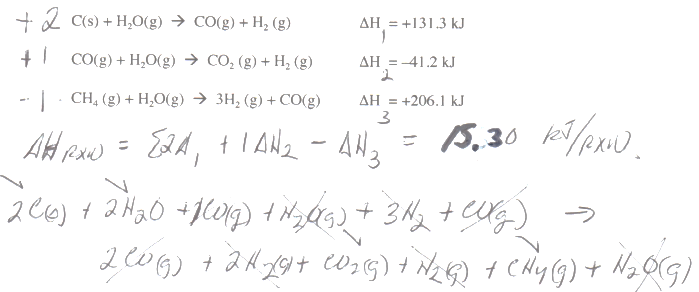 +2 C(s) + H₂O(g) → CO(g) + H₂ (g) ΔH₁ = +131.3 kJ
+1 CO(g) + H₂O(g) → CO₂ (g) + H₂ (g) ΔH₂ = –41.2 kJ
-1 CH₄ (g) + H₂O(g) → 3H₂ (g) + CO(g) ΔH₃ = +206.1 kJ
ΔH RXN = {2A₁ + 1ΔH₂ - ΔH₃ = 15.30 kJ/RXN.
2C(s) + 2H₂O + 1CO(g) + H₂O(g) + 3H₂ + CO(g) →
2CO(g) + 2H₂(g) + CO₂(g) + H₂(g) + CH₄(g) + H₂O(g)